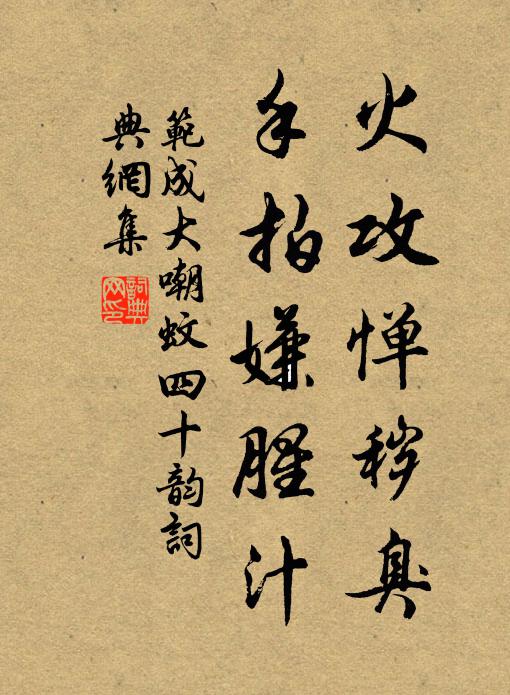 火攻惮秽臭
手拍嫌腥汁
範成大嘲蚊四十韵詞
典網集
詞典网印